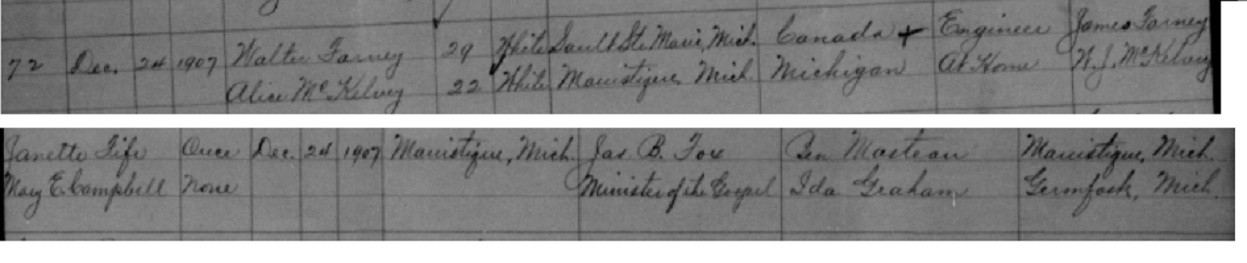 72 Dec. 24 1907 Walter Farney 29 White Sault Ste. Marie, Mich. Canada + Engineer James Farney
Alice McKelvey 22 White Manistique, Mich. Michigan At Home W. J. McKelvey
Janette Fife Once Dec. 24 1907 Manistique, Mich. Jas B. Fox Ben Mastean Manistique, Mich.
Mary E. Campbell None Minister of the Gospel Ida Graham Germfask, Mich.